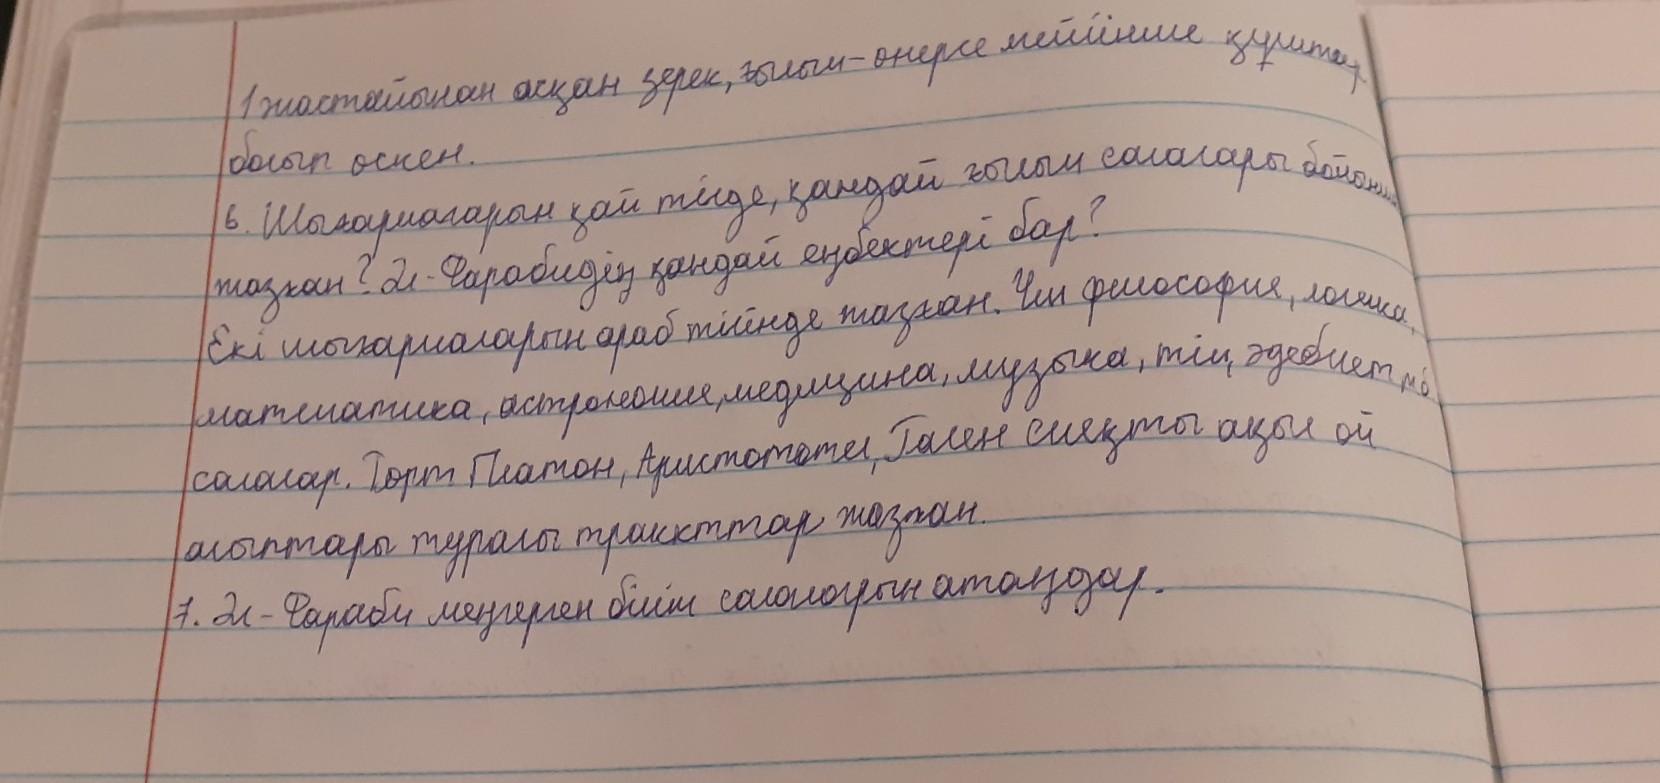 1 жастайынан асқан зерек, ғылым-өнерге мейлінше құштар
болып өскен.
6. Шығармаларын қай тілде, қандай ғылым салалары бойынша
жазған? Әл-Фарабидің қандай еңбектері бар?
Екі шығармаларын араб тілінде жазған. Үш философия, логика,
математика, астрономия, медицина, музыка, тіл, әдебиет
салалар. Төрт Платон, Аристототел, Гален сияқты ақыл ой
алыптары туралы тракттар жазған.
7. Әл-Фараби меңгерген білім салаларын атаңдар.